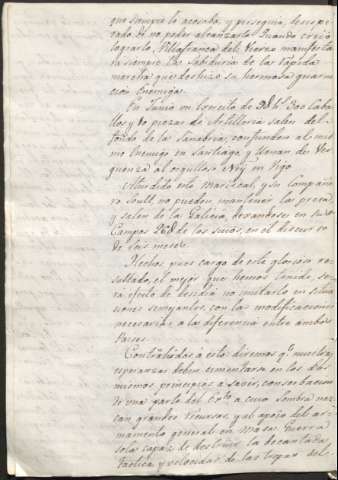 que siempre lo acosaba y perseguia, desespe-
rado de no poder alcanzarlo. Quando creyó
lograrlo, Villafranca del Vierzo manifesta-
rá siempre la sabiduria de la rápida
marcha que deshizo su hermosa guarni-
cion Enemiga.
En Junio un Exercito de 98 hs. 800 Caba-
llos y 10 piezas de Artilleria salen del
fondo de la Sanabria, confunden al mis-
mo Enemigo en Santiago, y llenan de Ver-
guenza al orgulloso Ney en Vigo.
Aturdido este Mariscal, y su compañe-
ro Soult, no pueden mantener la presa,
y salen de la Galicia, dexandose en sus
Campos 26 de los suios, en el discurso
de seis meses.
Hechos pues cargo de este glorioso re-
sultado, el mejor que hemos tenido, se-
ra efecto de desidia no imitarlo en situa-
ciones semejantes, con las modificaciones
necesarias a la diferencia entre ambos
Paises.
Contrahidos a esto diremos qe. nuestras
esperanzas deben cimentarse en los dos
mismos principios a saver, conserbacion
de una parte del Exto. a cuia sombra nez-
can grandes recursos, y al apoyo del ar-
mamento general en masa: Guerra
sola capaz de destruir la decantada
Tactica y velocidad de las tropas del